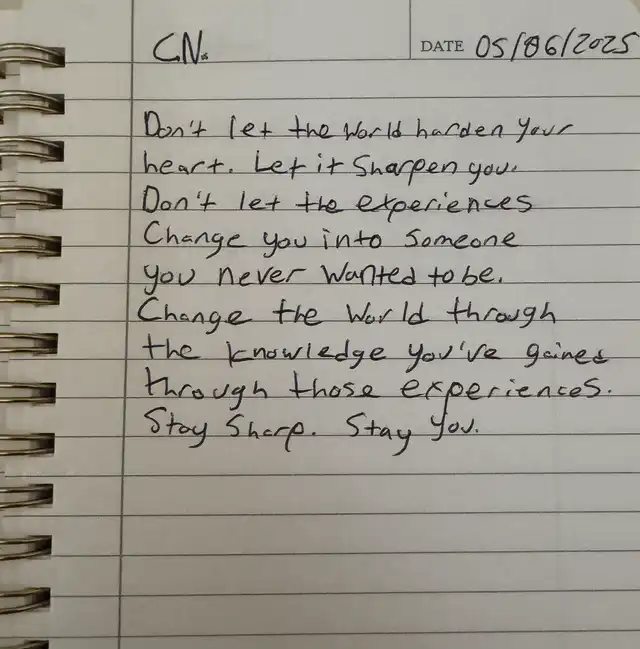 C.N.
DATE 05/06/2025
Don't let the World harden your
heart. Let it Sharpen you.
Don't let the experiences
Change you into Someone
you never Wanted to be.
Change the World through
the knowledge you've gained
through those experiences.
Stay Sharp. Stay You.